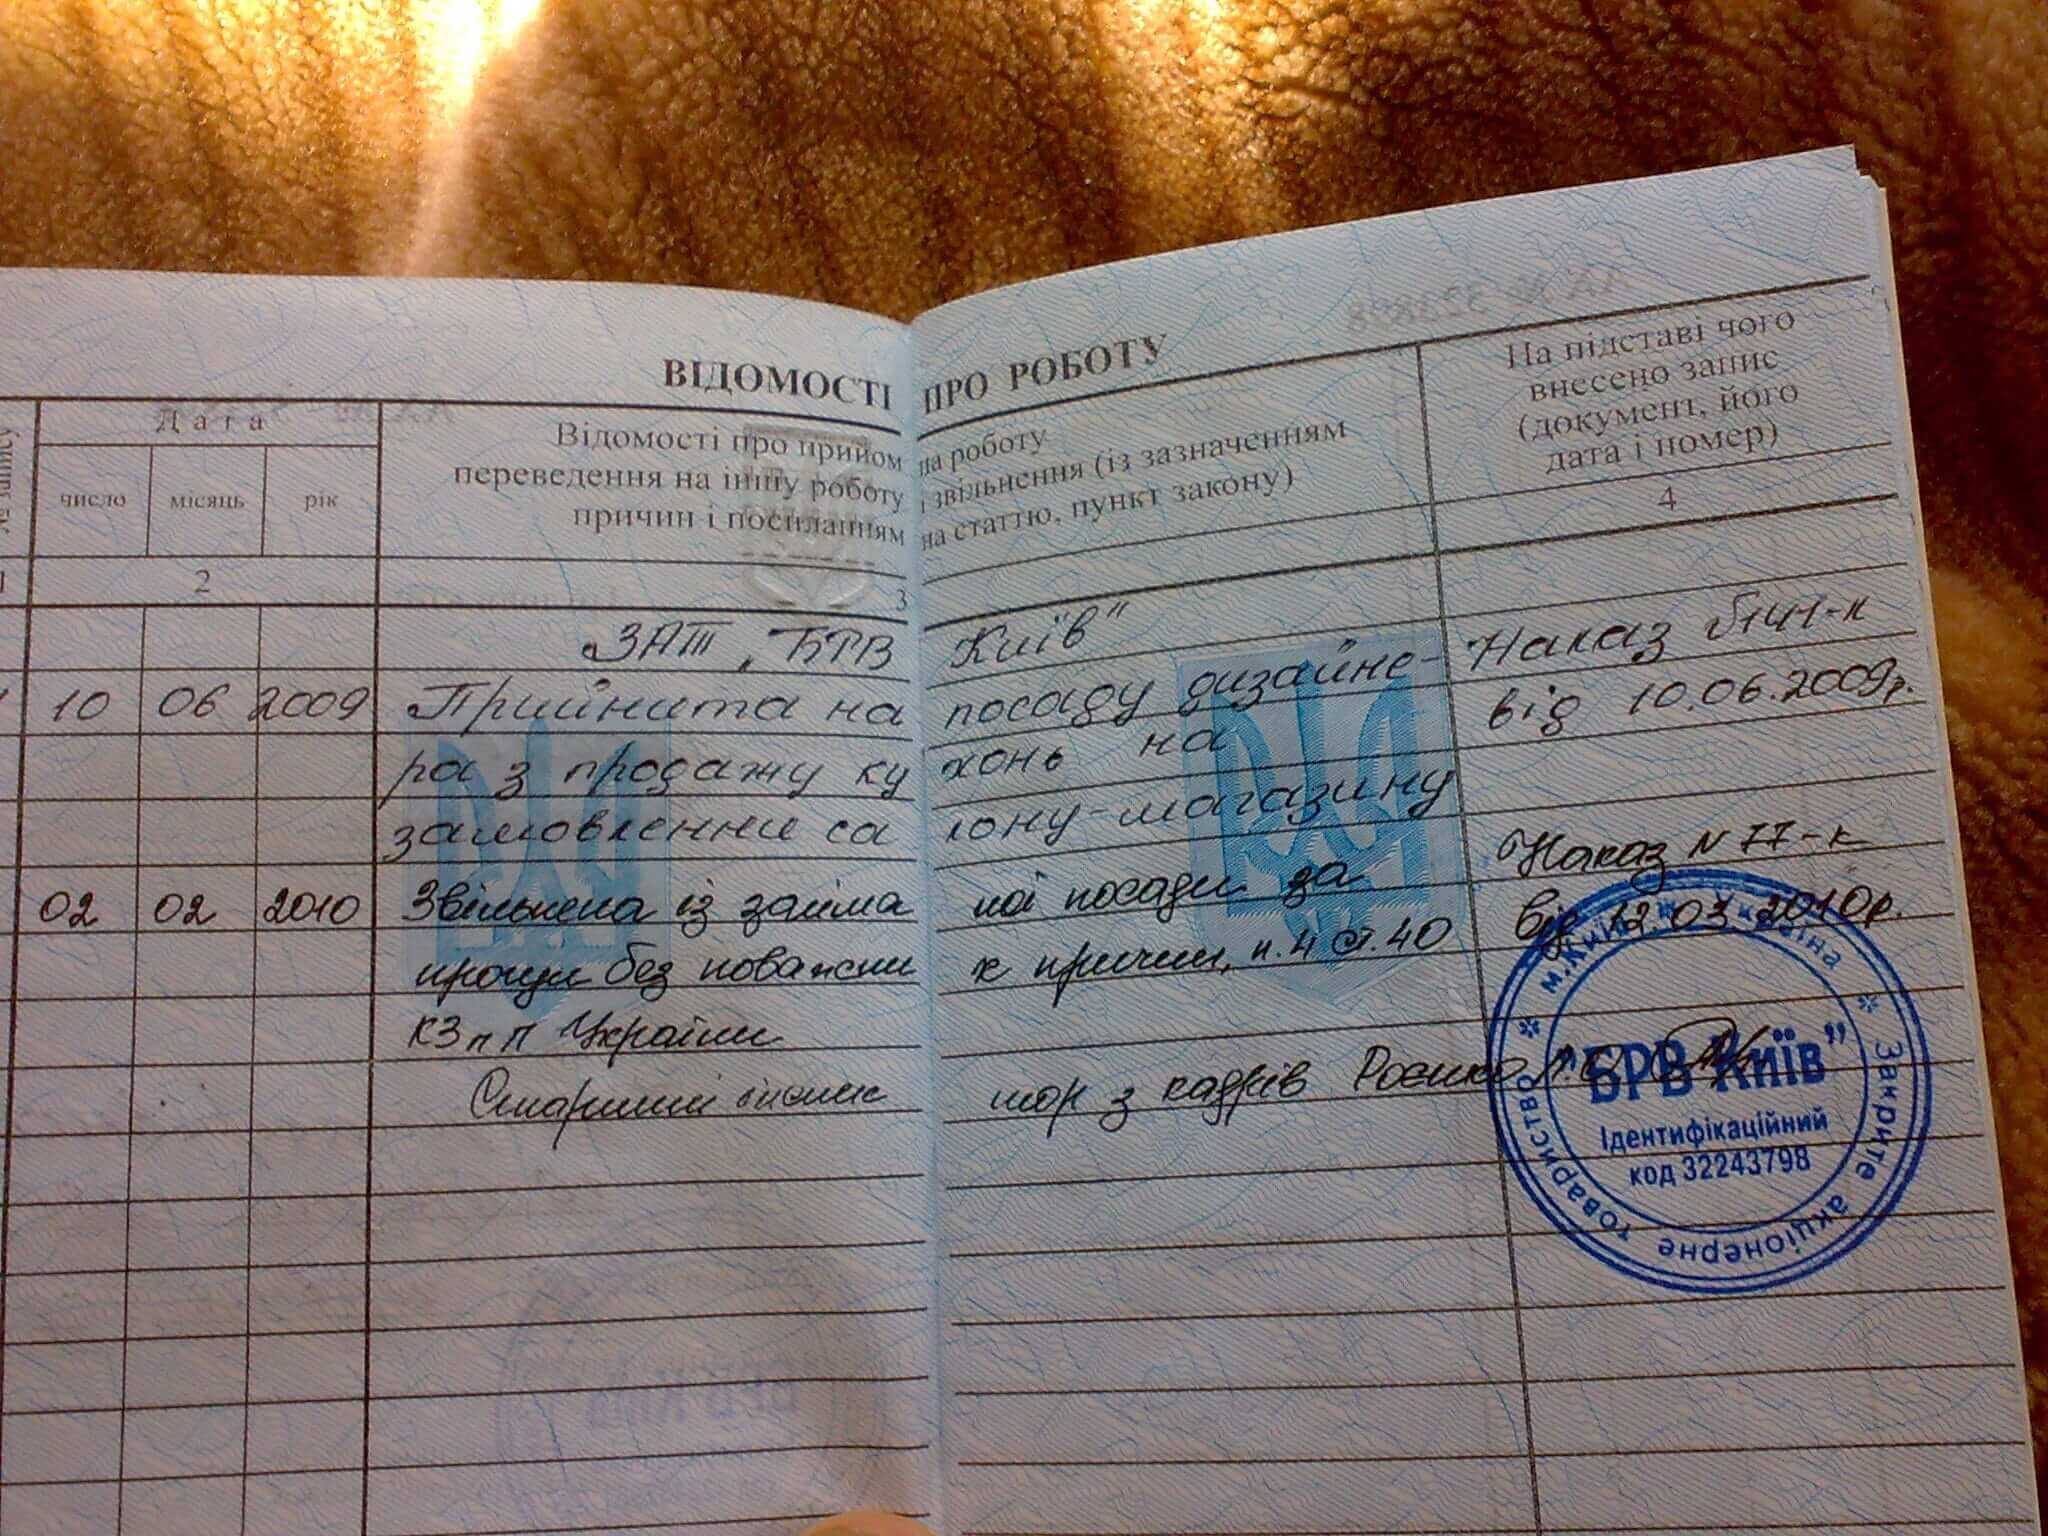 ВІДОМОСТІ ПРО РОБОТУ
Дата
число місяць рік
Відомості про прийом на роботу
переведення на іншу роботу і звільнення (із зазначенням
причин і посиланням на статтю, пункт закону)
На підставі чого
внесено запис
(документ, його
дата і номер)
2 3 4
ЗАТ „БРВ Київ"
10 06 2009 Прийнята на посаду дизайне- Наказ №141-к
ра з продажу кухонь на від 10.06.2009р.
замовлення салону-магазину
02 02 2010 Звільнена із займаної посади за Наказ №77-к
прогул без поважних причин, п.4 ст.40 від 12.03.2010р.
КЗпП України
Старший інспектор з кадрів
м.Київ * Україна * Закрите акціонерне товариство *
"БРВ Київ"
Ідентифікаційний
код 32243798